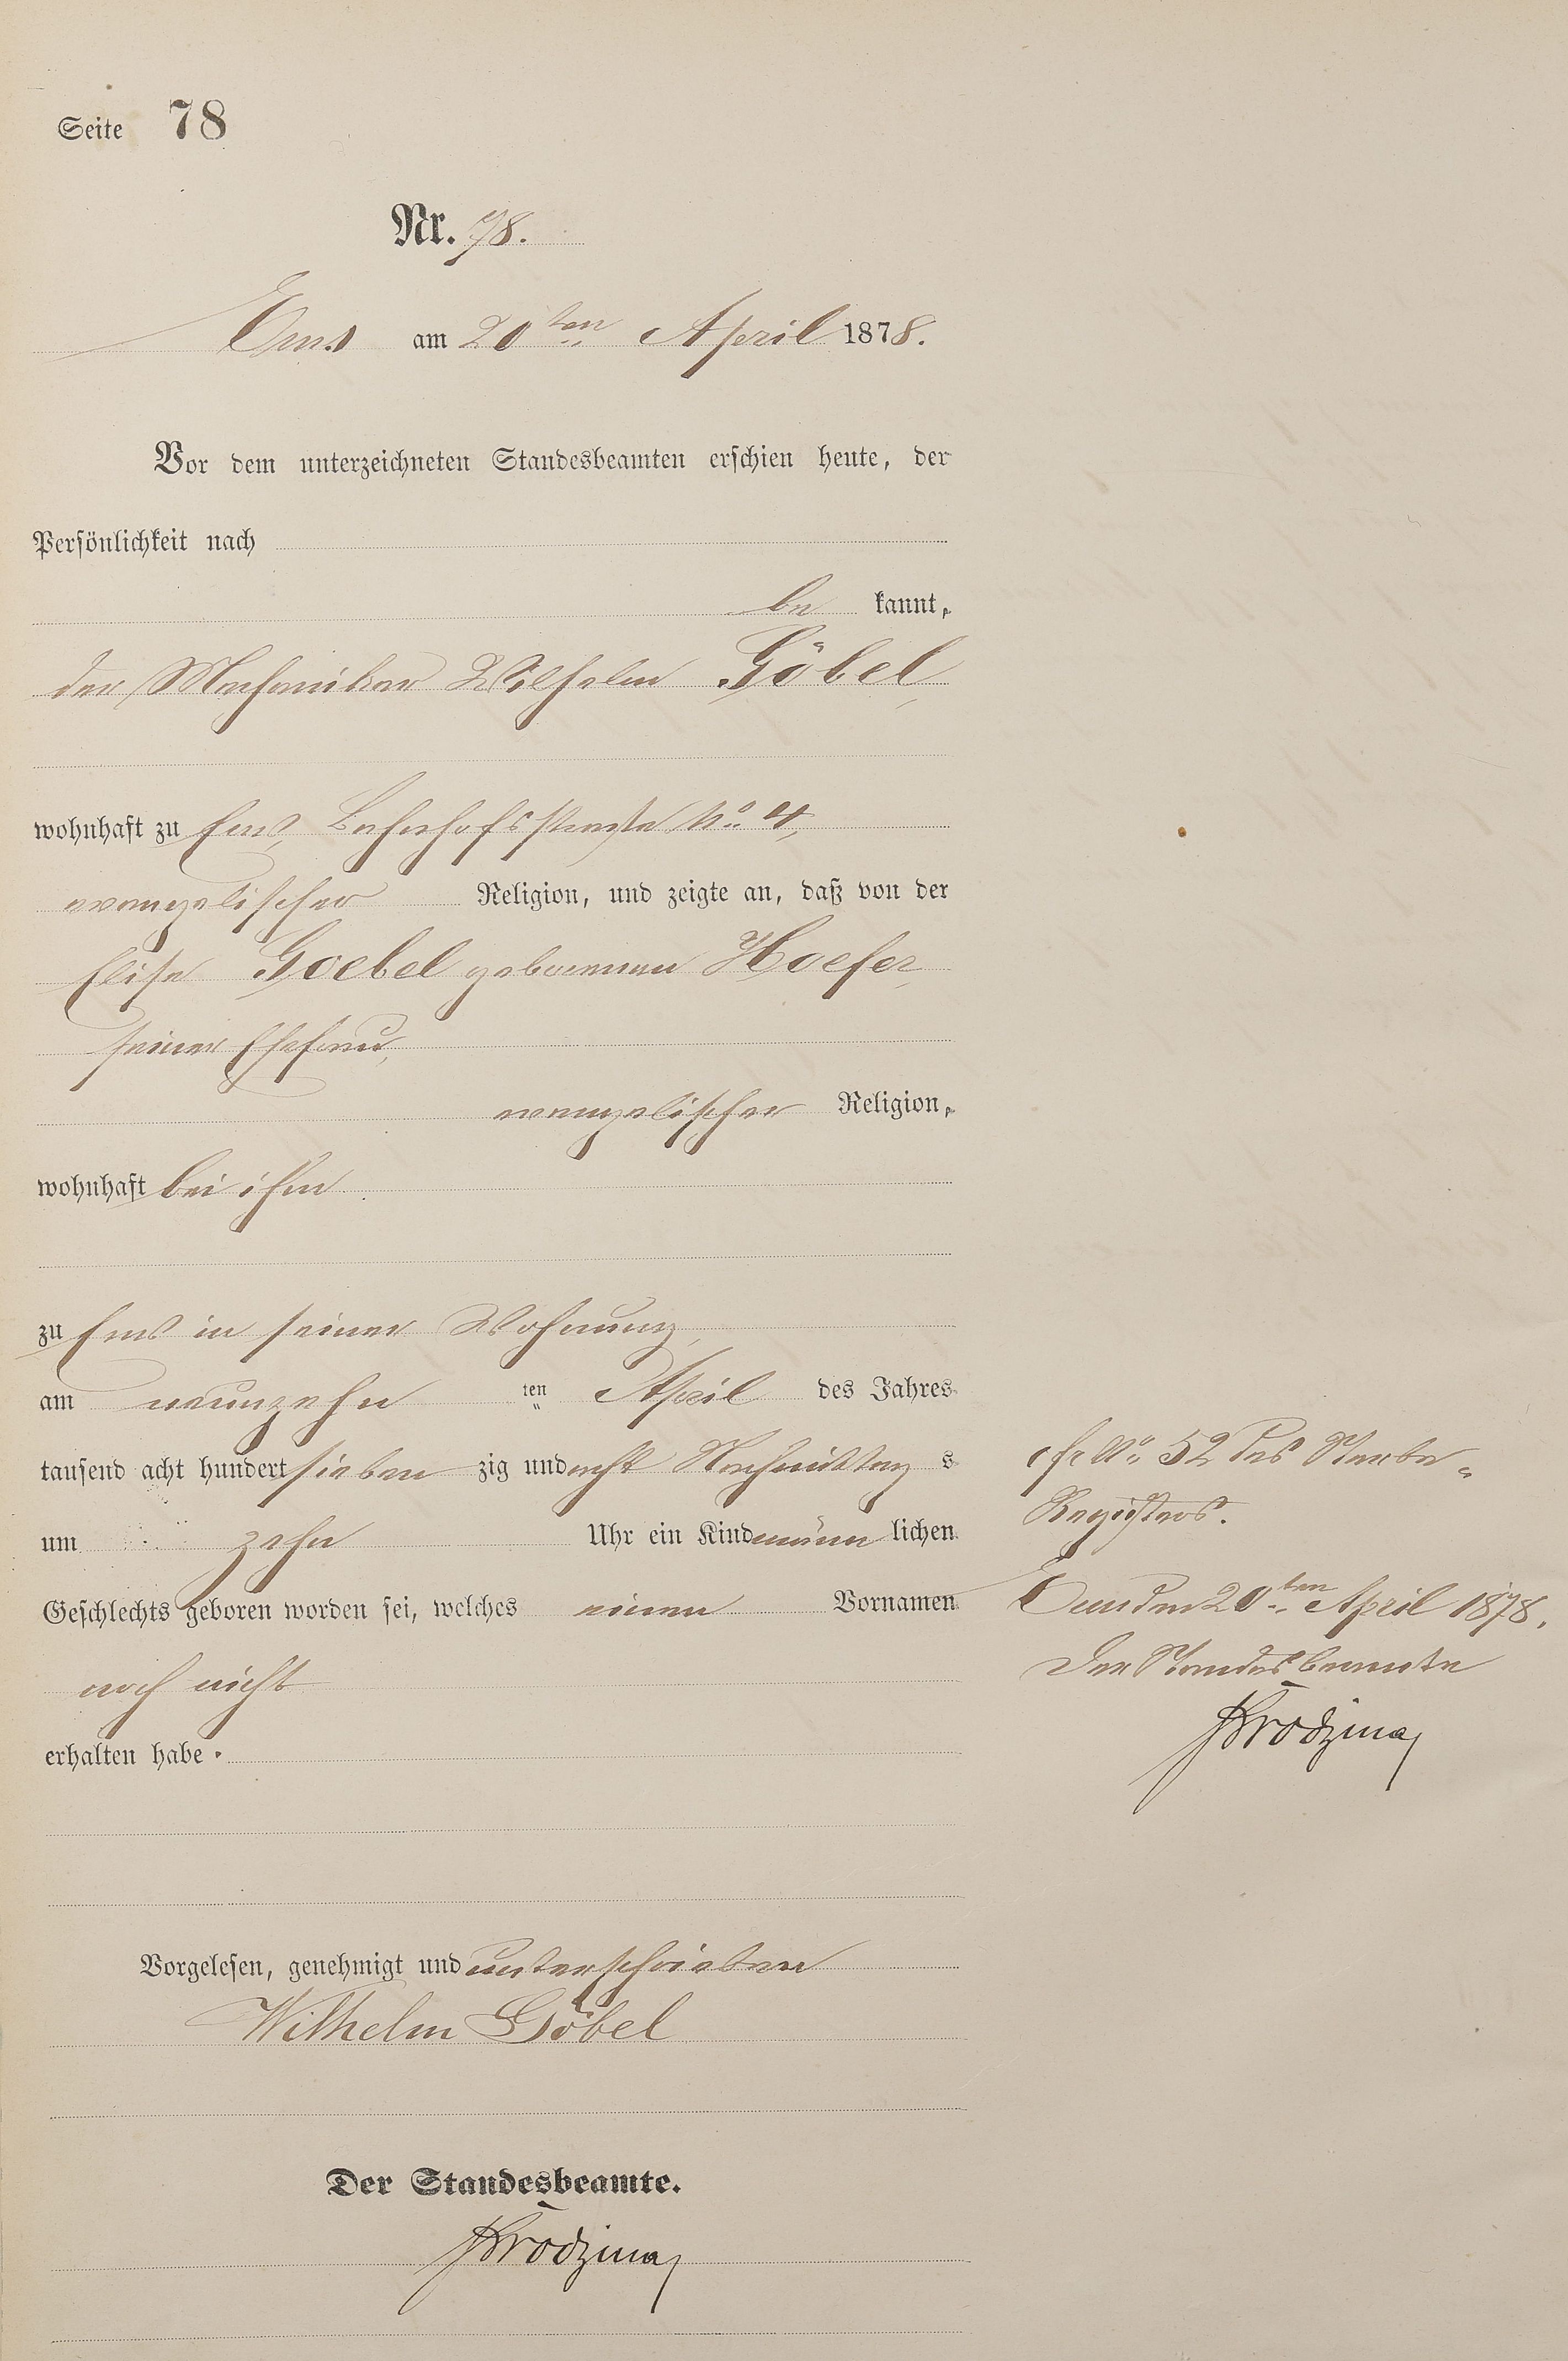 Seite 78
Nr. 78.
Ems am 20ten April 1878.
Vor dem unterzeichneten Standesbeamten erschien heute, der
Persönlichkeit nach
be kannt,
der Mechaniker Wilhelm Göbel,
wohnhaft zu Ems, Bahnhofsstraße No. 4,
evangelischer Religion, und zeigte an, daß von der
Elise Goebel geborenen Hoefer,
seiner Ehefrau,
evangelischer Religion,
wohnhaft bei ihm
zu Ems in seiner Wohnung,
am neunzehn ten April des Jahres
tausend acht hundert sieben zig und acht Nachmittag s
um zehn Uhr ein Kind männ lichen
Geschlechts geboren worden sei, welches einen Vornamen
noch nicht
erhalten habe.
Vorgelesen, genehmigt und unterschrieben
Wilhelm Göbel
Der Standesbeamte.
cfr No. 52 des Sterbe-
Registers.
Ems den 20ten April 1878.
Der Standesbeamte